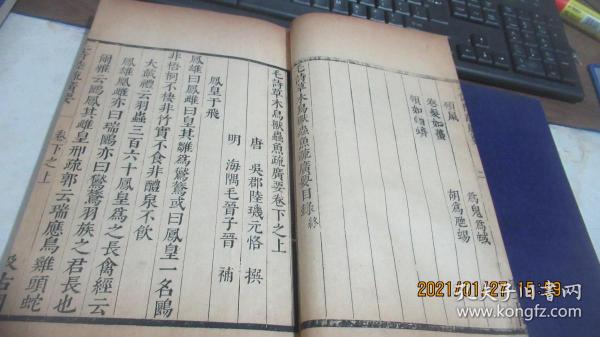 為鬼為蜮
胡為虺蜴
領如蝤蠐
卷髮如蠆
毛詩草木鳥獸蟲魚疏廣要目錄終
毛詩草木鳥獸蟲魚疏廣要卷下之上
唐 吳郡陸璣元恪 撰
明 海隅毛晉子晉 補
鳳皇于飛
鳳雄曰鳳雌曰皇其雛為鸑鷟或曰鳳皇一名鶠
非梧桐不棲非竹實不食非醴泉不飲
大戴禮云羽蟲三百六十鳳皇為之長禽經云
鳳雄凰雌亦曰瑞鶠亦曰鸑鷟羽族之君長也
爾雅云鶠鳳其雌皇邢疏郭云瑞應鳥雞頭蛇
卷下之上
汲古閣
2021/01/27
孔夫子旧书网